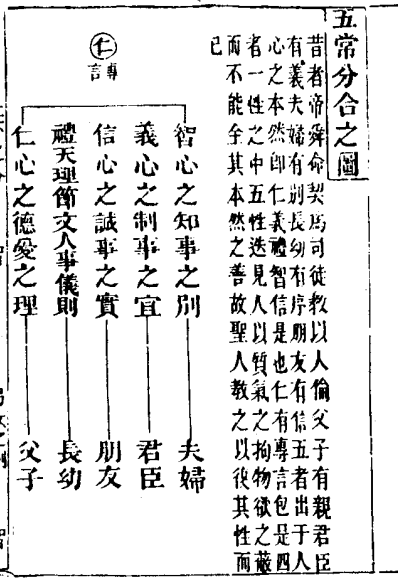 五常分合之圖
昔者帝舜命契爲司徒教以人倫父子有親君臣
有義夫婦有別長幼有序朋友有信五者出于人
心之本然卽仁義禮智信是也仁有專言包是四
者一性之中五性迭見人以質氣之拘物欲之蔽
而不能全其本然之善故聖人教之以復其性而
已
仁
專言
智心之知事之別 夫婦
義心之制事之宜 君臣
信心之誠事之實 朋友
禮天理節文人事儀則 長幼
仁心之德愛之理 父子